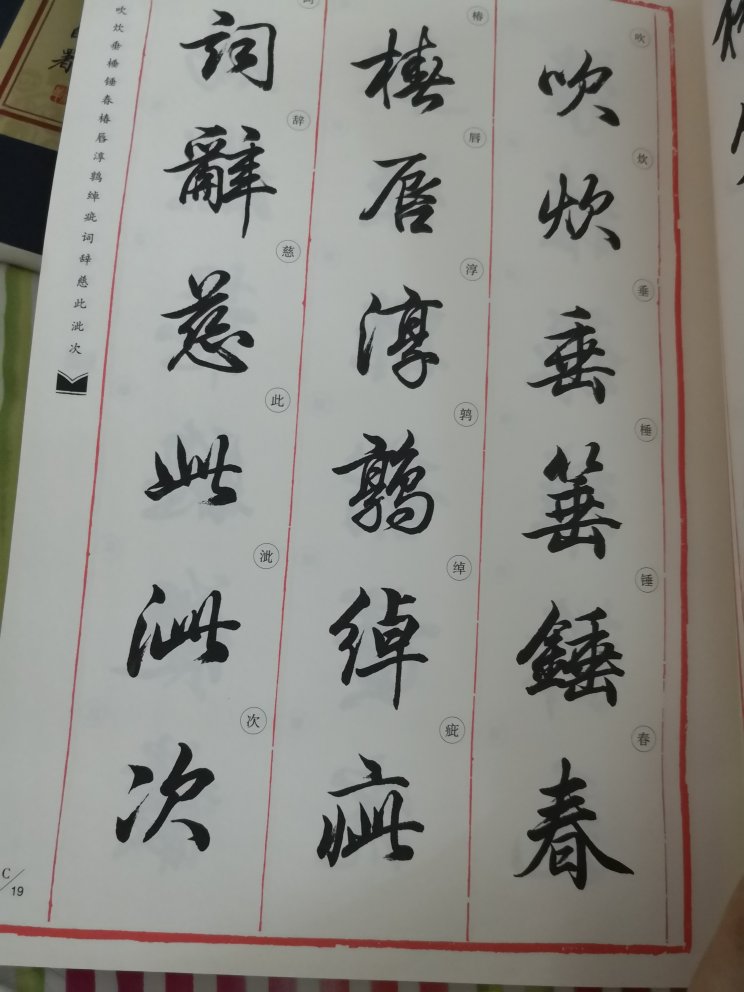 吹 炊 垂 棰 锤 春
吹 炊 垂 箠 錘 春
椿 唇 淳 鹑 绰 疵
椿 唇 淳 鶉 綽 疵
词 辞 慈 此 泚 次
詞 辭 慈 此 泚 次
吹炊垂棰锤春椿唇淳鹑绰疵词辞慈此泚次
C/19